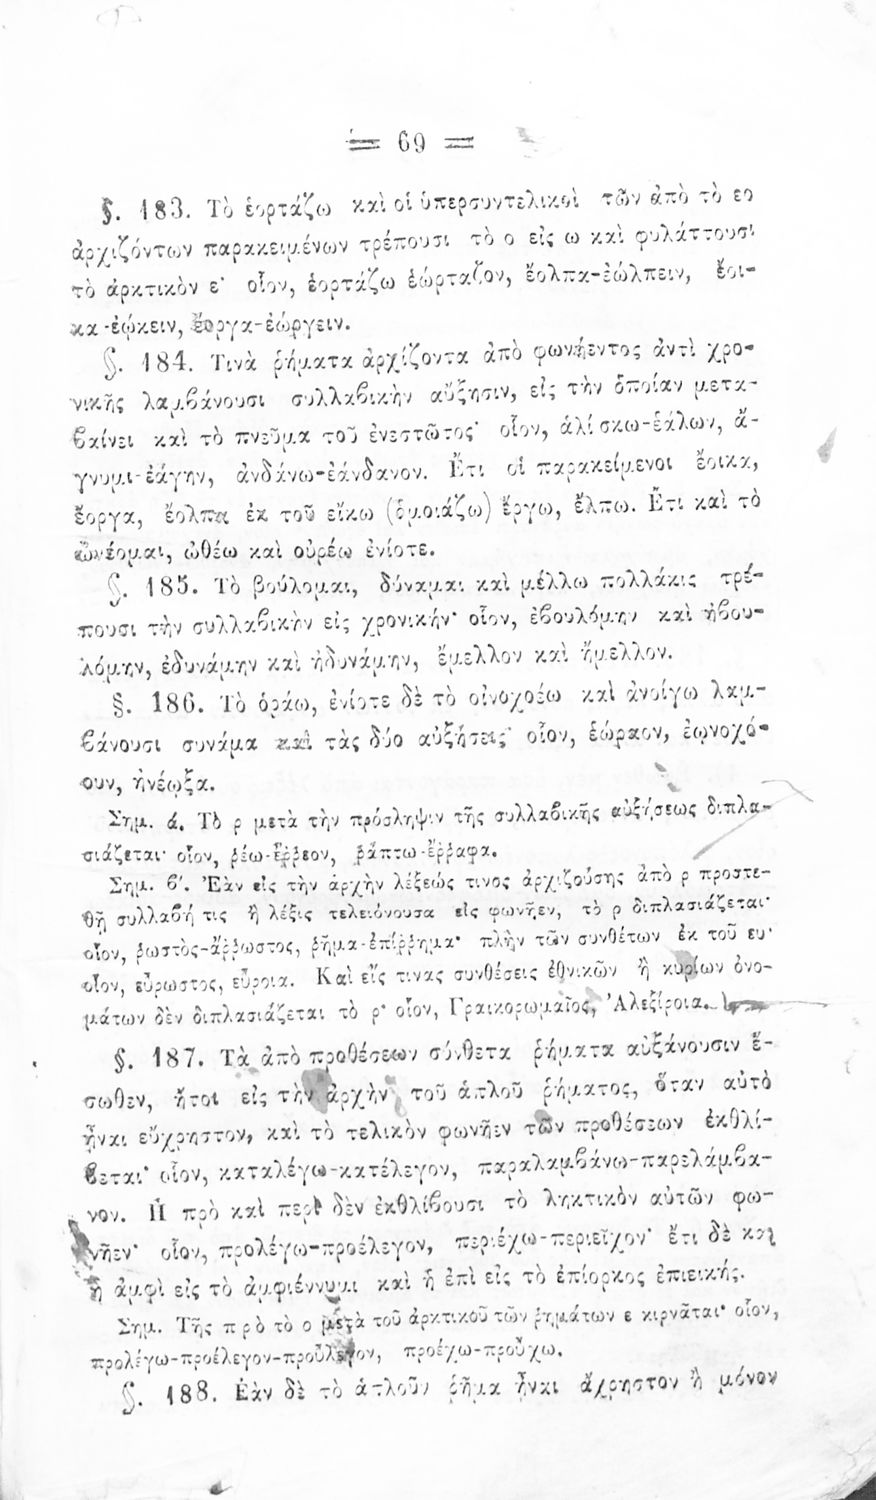 = 69 =
§. 183. Τὸ ἑορτάζω καὶ οἱ ὑπερσυντελικοὶ τῶν ἀπὸ τὸ εο
ἀρχιζόντων παρακειμένων τρέπουσι τὸ ο εἰς ω καὶ φυλάττουσι
τὸ ἀρκτικὸν ε· οἷον, ἑορτάζω ἑώρταζον, ἔολπα-ἐώλπειν, ἔοι-
κα-ἐῴκειν, ἔοργα-ἐώργειν.
§. 184. Τινὰ ῥήματα ἀρχίζοντα ἀπὸ φωνήεντος ἀντὶ χρο-
νικῆς λαμβάνουσι συλλαβικὴν αὔξησιν, εἰς τὴν ὁποίαν μετα-
βαίνει καὶ τὸ πνεῦμα τοῦ ἐνεστῶτος· οἷον, ἁλίσκω-ἑάλων, ἄ-
γνυμι-ἐάγην, ἁνδάνω-ἑάνδανον. Ἔτι οἱ παρακείμενοι ἔοικα,
ἔοργα, ἔολπα ἐκ τοῦ εἴκω (ὁμοιάζω) ἔργω, ἔλπω. Ἔτι καὶ τὸ
ὠνέομαι, ὠθέω καὶ οὐρέω ἐνίοτε.
§. 185. Τὸ βούλομαι, δύναμαι καὶ μέλλω πολλάκις τρέ-
πουσι τὴν συλλαβικὴν εἰς χρονικήν· οἷον, ἐβουλόμην καὶ ἠβου-
λόμην, ἐδυνάμην καὶ ἠδυνάμην, ἔμελλον καὶ ἤμελλον.
§. 186. Τὸ ὁράω, ἐνίοτε δὲ τὸ οἰνοχοέω καὶ ἀνοίγω λαμ-
βάνουσι συνάμα καὶ τὰς δύο αὐξήσεις· οἷον, ἑώραον, ἐῳνοχό-
ουν, ἠνέῳξα.
Σημ. ά. Τὸ ρ μετὰ τὴν πρόσληψιν τῆς συλλαβικῆς αὐξήσεως διπλα-
σιάζεται· οἷον, ῥέω-ἔῤῥεον, ῥάπτω-ἔῤῥαφα.
Σημ. β'. Ἐὰν εἰς τὴν ἀρχὴν λέξεώς τινος ἀρχιζούσης ἀπὸ ρ προστε-
θῇ συλλαβή τις ἢ λέξις τελειόνουσα εἰς φωνῆεν, τὸ ρ διπλασιάζεται·
οἷον, ῥωστὸς-ἄῤῥωστος, ῥῆμα-ἐπίῤῥημα· πλὴν τῶν συνθέτων ἐκ τοῦ ευ·
οἷον, εὔρωστος, εὔροια. Καὶ εἴς τινας συνθέσεις ἐθνικῶν ἢ κυρίων ὀνο-
μάτων δὲν διπλασιάζεται τὸ ρ· οἷον, Γραικορωμαῖος, Ἀλεξίροια.
§. 187. Τὰ ἀπὸ προθέσεων σύνθετα ῥήματα αὐξάνουσιν ἔ-
σωθεν, ἤτοι εἰς τὴν ἀρχὴν τοῦ ἁπλοῦ ῥήματος, ὅταν αὐτὸ
ἦναι εὔχρηστον, καὶ τὸ τελικὸν φωνῆεν τῶν προθέσεων ἐκθλί-
βεται· οἷον, καταλέγω-κατέλεγον, παραλαμβάνω-παρελάμβα-
νον. Ἡ πρὸ καὶ περὶ δὲν ἐκθλίβουσι τὸ ληκτικὸν αὐτῶν φω-
νῆεν· οἷον, προλέγω-προέλεγον, περιέχω-περιεῖχον· ἔτι δὲ καὶ
ἡ ἀμφὶ εἰς τὸ ἀμφιέννυμι καὶ ἡ ἐπὶ εἰς τὸ ἐπίορκος ἐπιεικής.
Σημ. Τῆς πρὸ τὸ ο μετὰ τοῦ ἀρκτικοῦ τῶν ῥημάτων ε κιρνᾶται· οἷον,
προλέγω-προέλεγον-προὔλεγον, προέχω-προὔχω.
§. 188. Ἐὰν δὲ τὸ ἁπλοῦν ῥῆμα ἦναι ἄχρηστον ἢ μόνον